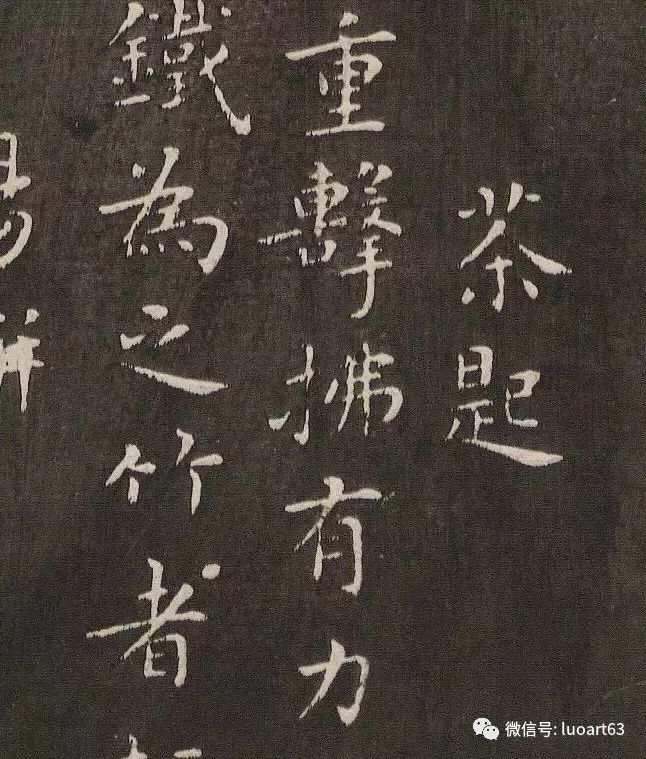 茶匙
重擊拂有力
鐵為之竹者
湯
微信号: luoart63